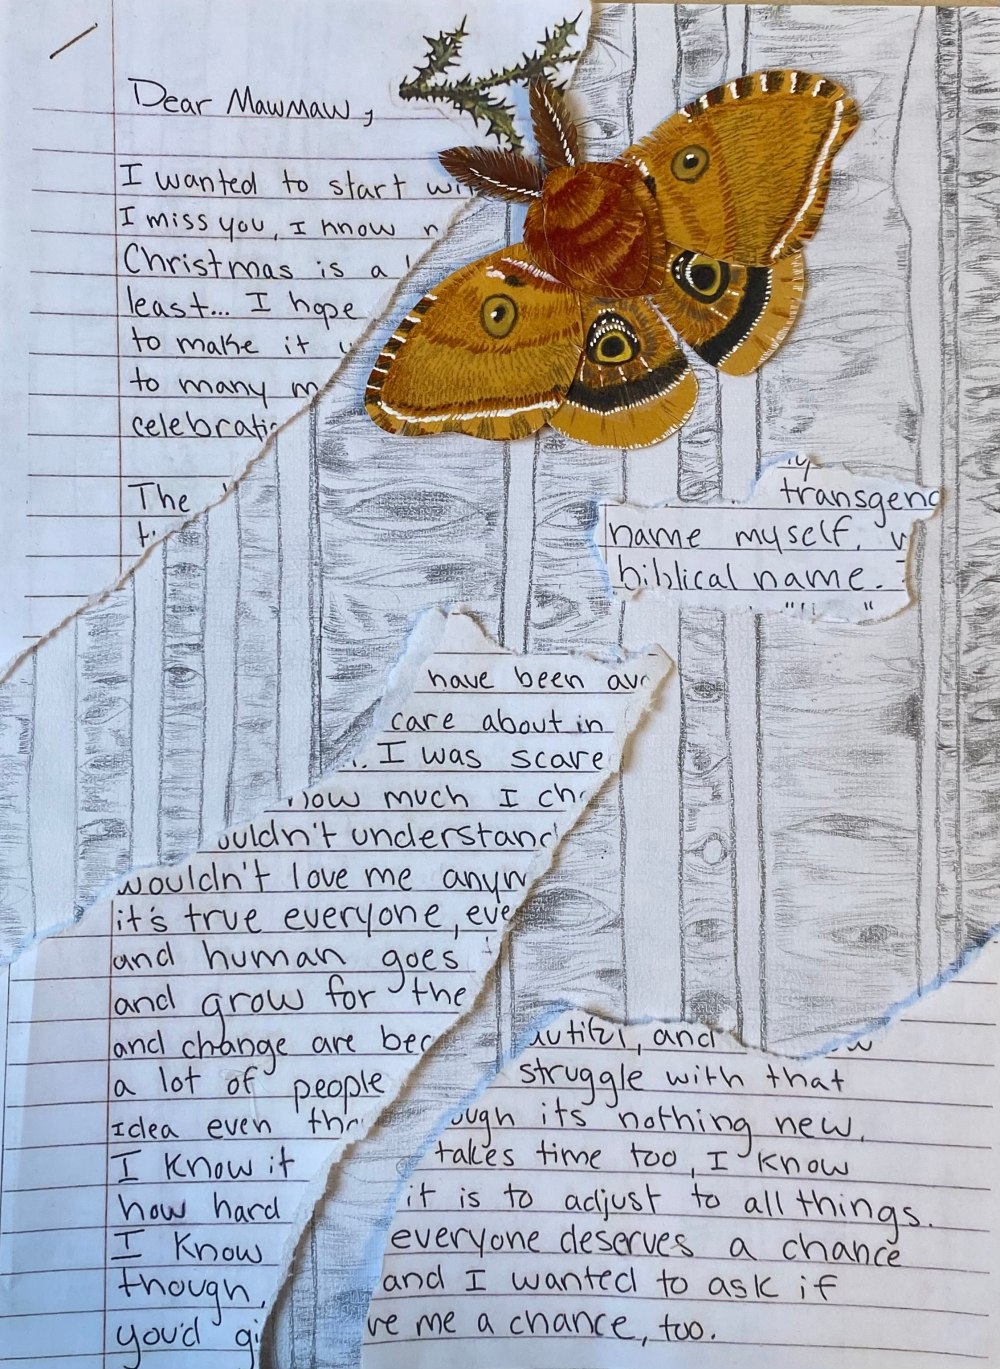 Dear Mawmaw,
I wanted to start wi
I miss you, I know n
Christmas is a
least... I hope
to make it
to many m
celebrati
The
t
transgend
name myself, w
biblical name.
have been av
care about in
I was scare
now much I ch
ouldn't understand
wouldn't love me anyw
it's true everyone, eve
and human goes
and grow for the
and change are bec autiful, and
a lot of people struggle with that
idea even tho ough its nothing new.
I know it takes time too, I know
how hard it is to adjust to all things.
I know everyone deserves a chance
though, and I wanted to ask if
you'd gi ve me a chance, too.